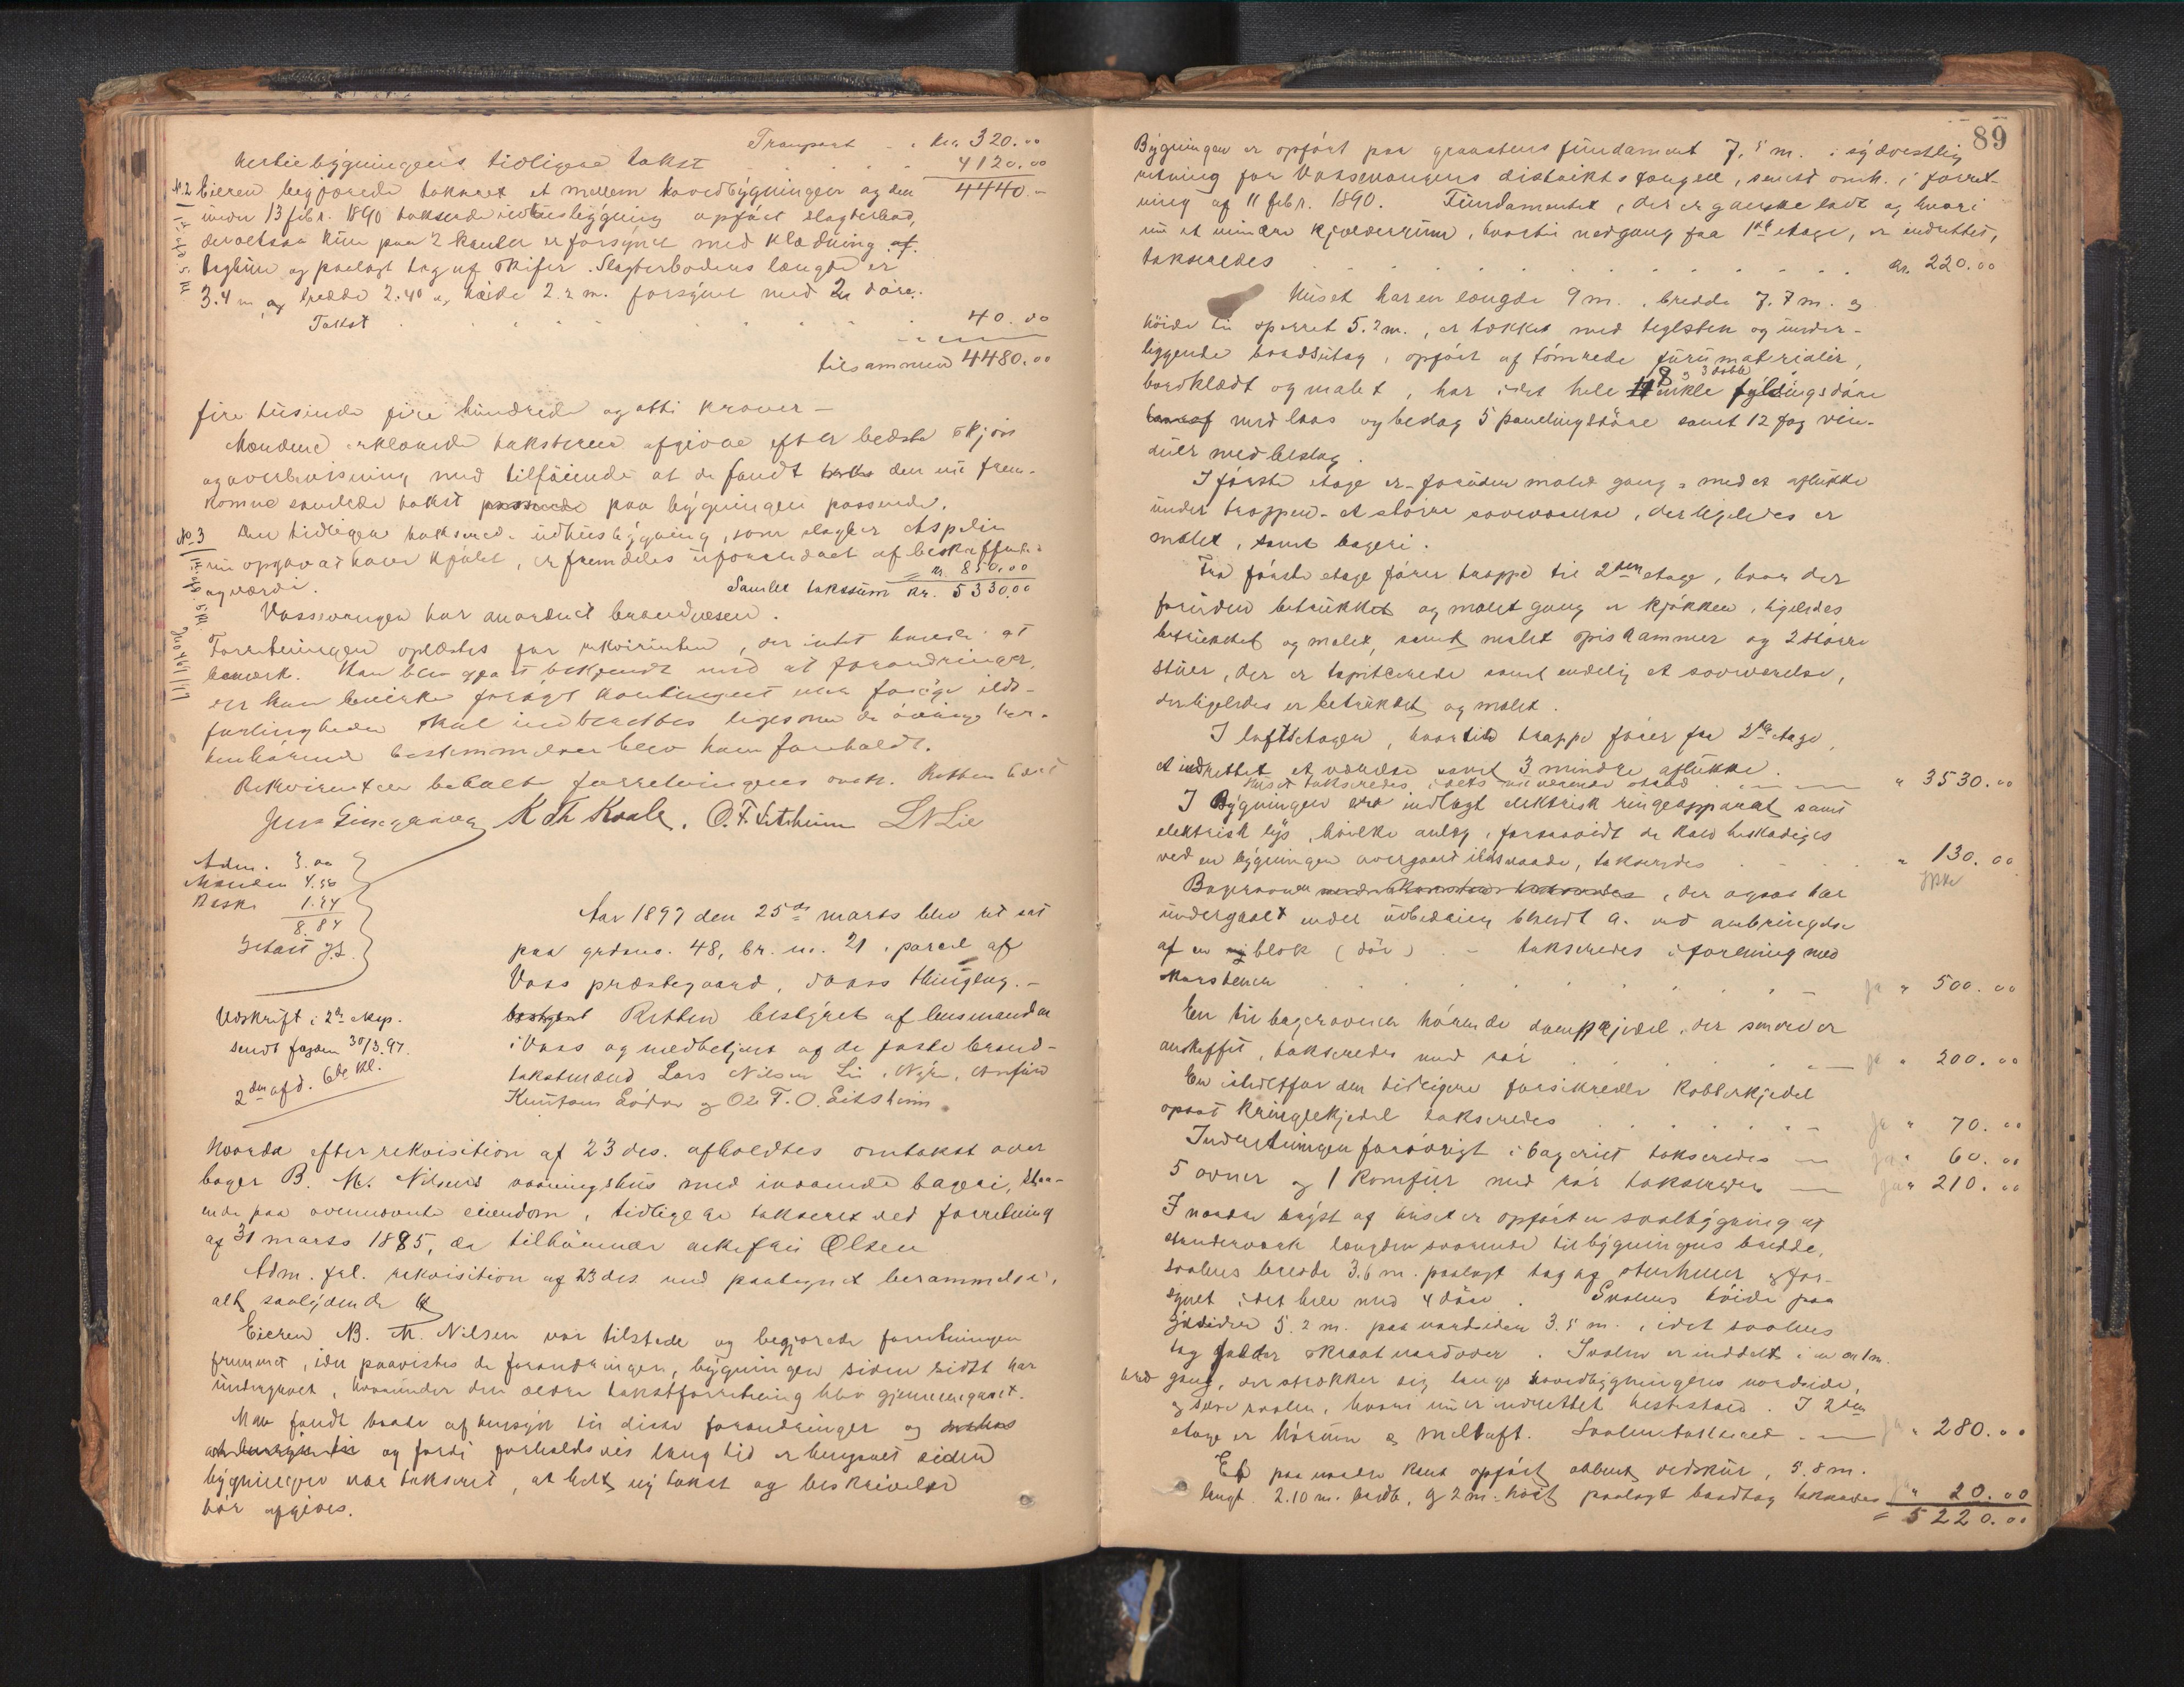 Transport - " Kr. 320.00
hertil bygningens tidligere takst . . . 4120.00
4440.-
No 2 Eieren begjærede takseret et mellem hovedbygningen og den
under 13 febr. 1890 takserede udhusbygning opført slagterbod,
der altsaa kun paa 2 kanter er forsynet med klædning af
og paalagt tag af skifer. Slagterbodens længde er
3.4 m, og bredde 2.40 og høide 2.2 m. forsynet med 2 døre.
Takst . . . . . . . 40.00
tilsammen 4480.00
fire tusinde fire hundrede og otti kroner -
Mændene erklærede taksterne afgivne efter bedste skjøn
og overbevisning med tilføiende at de fandt den nu frem-
komne samlede takst paa bygningen passende.
No 3 Den tidligere takserede udhusbygning, som slagter Aspelin
nu opgav at have kjøbt, er fremdeles uforandret af beskaffenhed
og værdi. = kr. 850.00
Samlet takssum kr. 5330.00
Vossevangen har anordnet brandvæsen.
Forretningen oplæstes for rekvirenten, der intet havde at
bemærke. Han blev gjort bekjendt med at forandringer,
der kan bevirke forøget kontingent eller forøge ilds-
farligheden skal indberettes ligesom de øvrige her-
henhørende bestemmelser blev ham foreholdt.
Rekvirenten betalte forretningens omk. Retten hævet
Jens Gjukganæ K Th Kvale. O. F. Eitsheim L N Lie
Adm. 3.00
Mænden 4.50
Besk. 1.34
8.84
Udskrift i 2 de Exp.
sendt fogden 30/3.97.
2den afd. 6te kl.
Aar 1897 den 25de marts blev ret sat
paa grdsno. 48, br. no. 21, parcel af
Voss præstegaard, Voss thinglag. -
Retten bestyret af lensmanden
i Voss og medbetjent af de faste brand-
takstmænd Lars Nilsen Lie, Nygm, Anfind
Knutson Lødve og Ole T. O. Eitsheim
Hvorda efter rekvisition af 23 ds. afholdtes omtakst over
bager B. M. Nilsens vaaningshus med iværende bageri, staa-
ende paa ovennævnte eiendom, tidligere takseret ved forretning
af 31 marts 1885, da tilhørende enkefru Olsen
Adm. frl. rekvisition af 23 ds med paategnet berammelse,
alt saalydende
Eieren B. M. Nilsen var tilstede og begjærede forretningen
fremmet, idet paavistes de forandringer, bygningen siden sidst har
undergaaet, hvorunder den ældre takstforretning blev gjennemgaaet.
Man fandt baade af hensyn til disse forandringer og
og fordi forholdsvis lang tid er hengaaet siden
bygningen var takseret, at helt ny takst og beskrivelse
bør afgives.
89
Bygningen er opført paa graastens fundament 7,5 m. i sydvestlig
retning for Vossevangens distrikts fængsel, senest omh. i forret-
ning af 11 febr. 1890. Fundamentet, der er ganske lavt og hvori
nu et mindre kjælderrum, hvortil nedgang fra 1ste etage, er indrettet,
takseredes . . . . . . . Kr. 220.00
Huset har en længde 9 m., bredde 7.7 m. og
høide til sperret 5.2 m., er tækket med teglsten og under-
liggende bordsutag, opført af tømrede furumaterialier,
bordklædt og malet, har i det hele 8 enkle 3 doble fyldingsdøre
med laas og beslag 5 panelingsdøre samt 12 fag vin-
duer med beslag.
I første etage er foruden malet gang, med et aflukke
under trappen - et større soveværelse, der ligeledes er
malet, samt bageri.
Fra første etage fører trappe til 2den etage, hvor der
foruden betrukket og malet gang er kjøkken, ligeledes
betrukket og malet, samt malet spiskammer og 2 større
stuer, der er tapitserede samt endelig et soveværelse,
der ligeledes er betrukket og malet.
I loftsetagen, hvortil trappe fører fra 2den etage,
er indrettet et værelse samt 3 mindre aflukke.
Huset takseredes i dets nuværende stand . - - " 3530.00
I Bygningen ere indlagt elektrisk ringeapparat samt
elektrisk lys, hvilke anlæg, forsaavidt de kan beskadiges
ved en bygningen overgaaet ildsvaade, takseredes . . . " 130.00
Ikke
Bagerovnen, der ogsaa har
undergaaet endel udbedring blandt a. ved anbringelse
af en blok (dør) - takseredes i forening med
skorstenen . . . . . . . Ja " 500.00
En til bagerovnen hørende dampkjedel, der senere er
anskaffet, takseredes med rør . . . . Ja " 200.00
En istedetfor den tidligere forsikrede kobberkjedel
opsat kringlekjedel takseredes . . . . . Ja " 70.00
Indretningen forøvrigt i bageriet takseredes - Ja " 60.00
5 ovner og 1 komfur med rør takseredes - Ja " 210.00
I nordre bryst af huset er opført en svalbygning af
stenderværk længden svarende til bygningens bredde,
svalens bredde 3.6 m. paalagt tag af stenheller og for-
synet i det hele med 4 døre. Svalens høide paa
sydsiden 5.2 m. paa nordsiden 3.5 m., idet svalens
tag falder skraat nordover. Svalen er inddelt i en ca 1 m.
bred gang, der strækker sig langs hovedbygningens nordside,
og selve svalen, hvori nu er indrettet hestestald. I 2den
etage er hørum og melloft. Svalen takseredes - Ja " 280.00
Et paa nordre kant opført aabent vedskur, 5.8 m.
langt 2.10 m. bredt, og 2 m. høit paalagt bordtag takseredes Ja " 20.00
= 5220.00